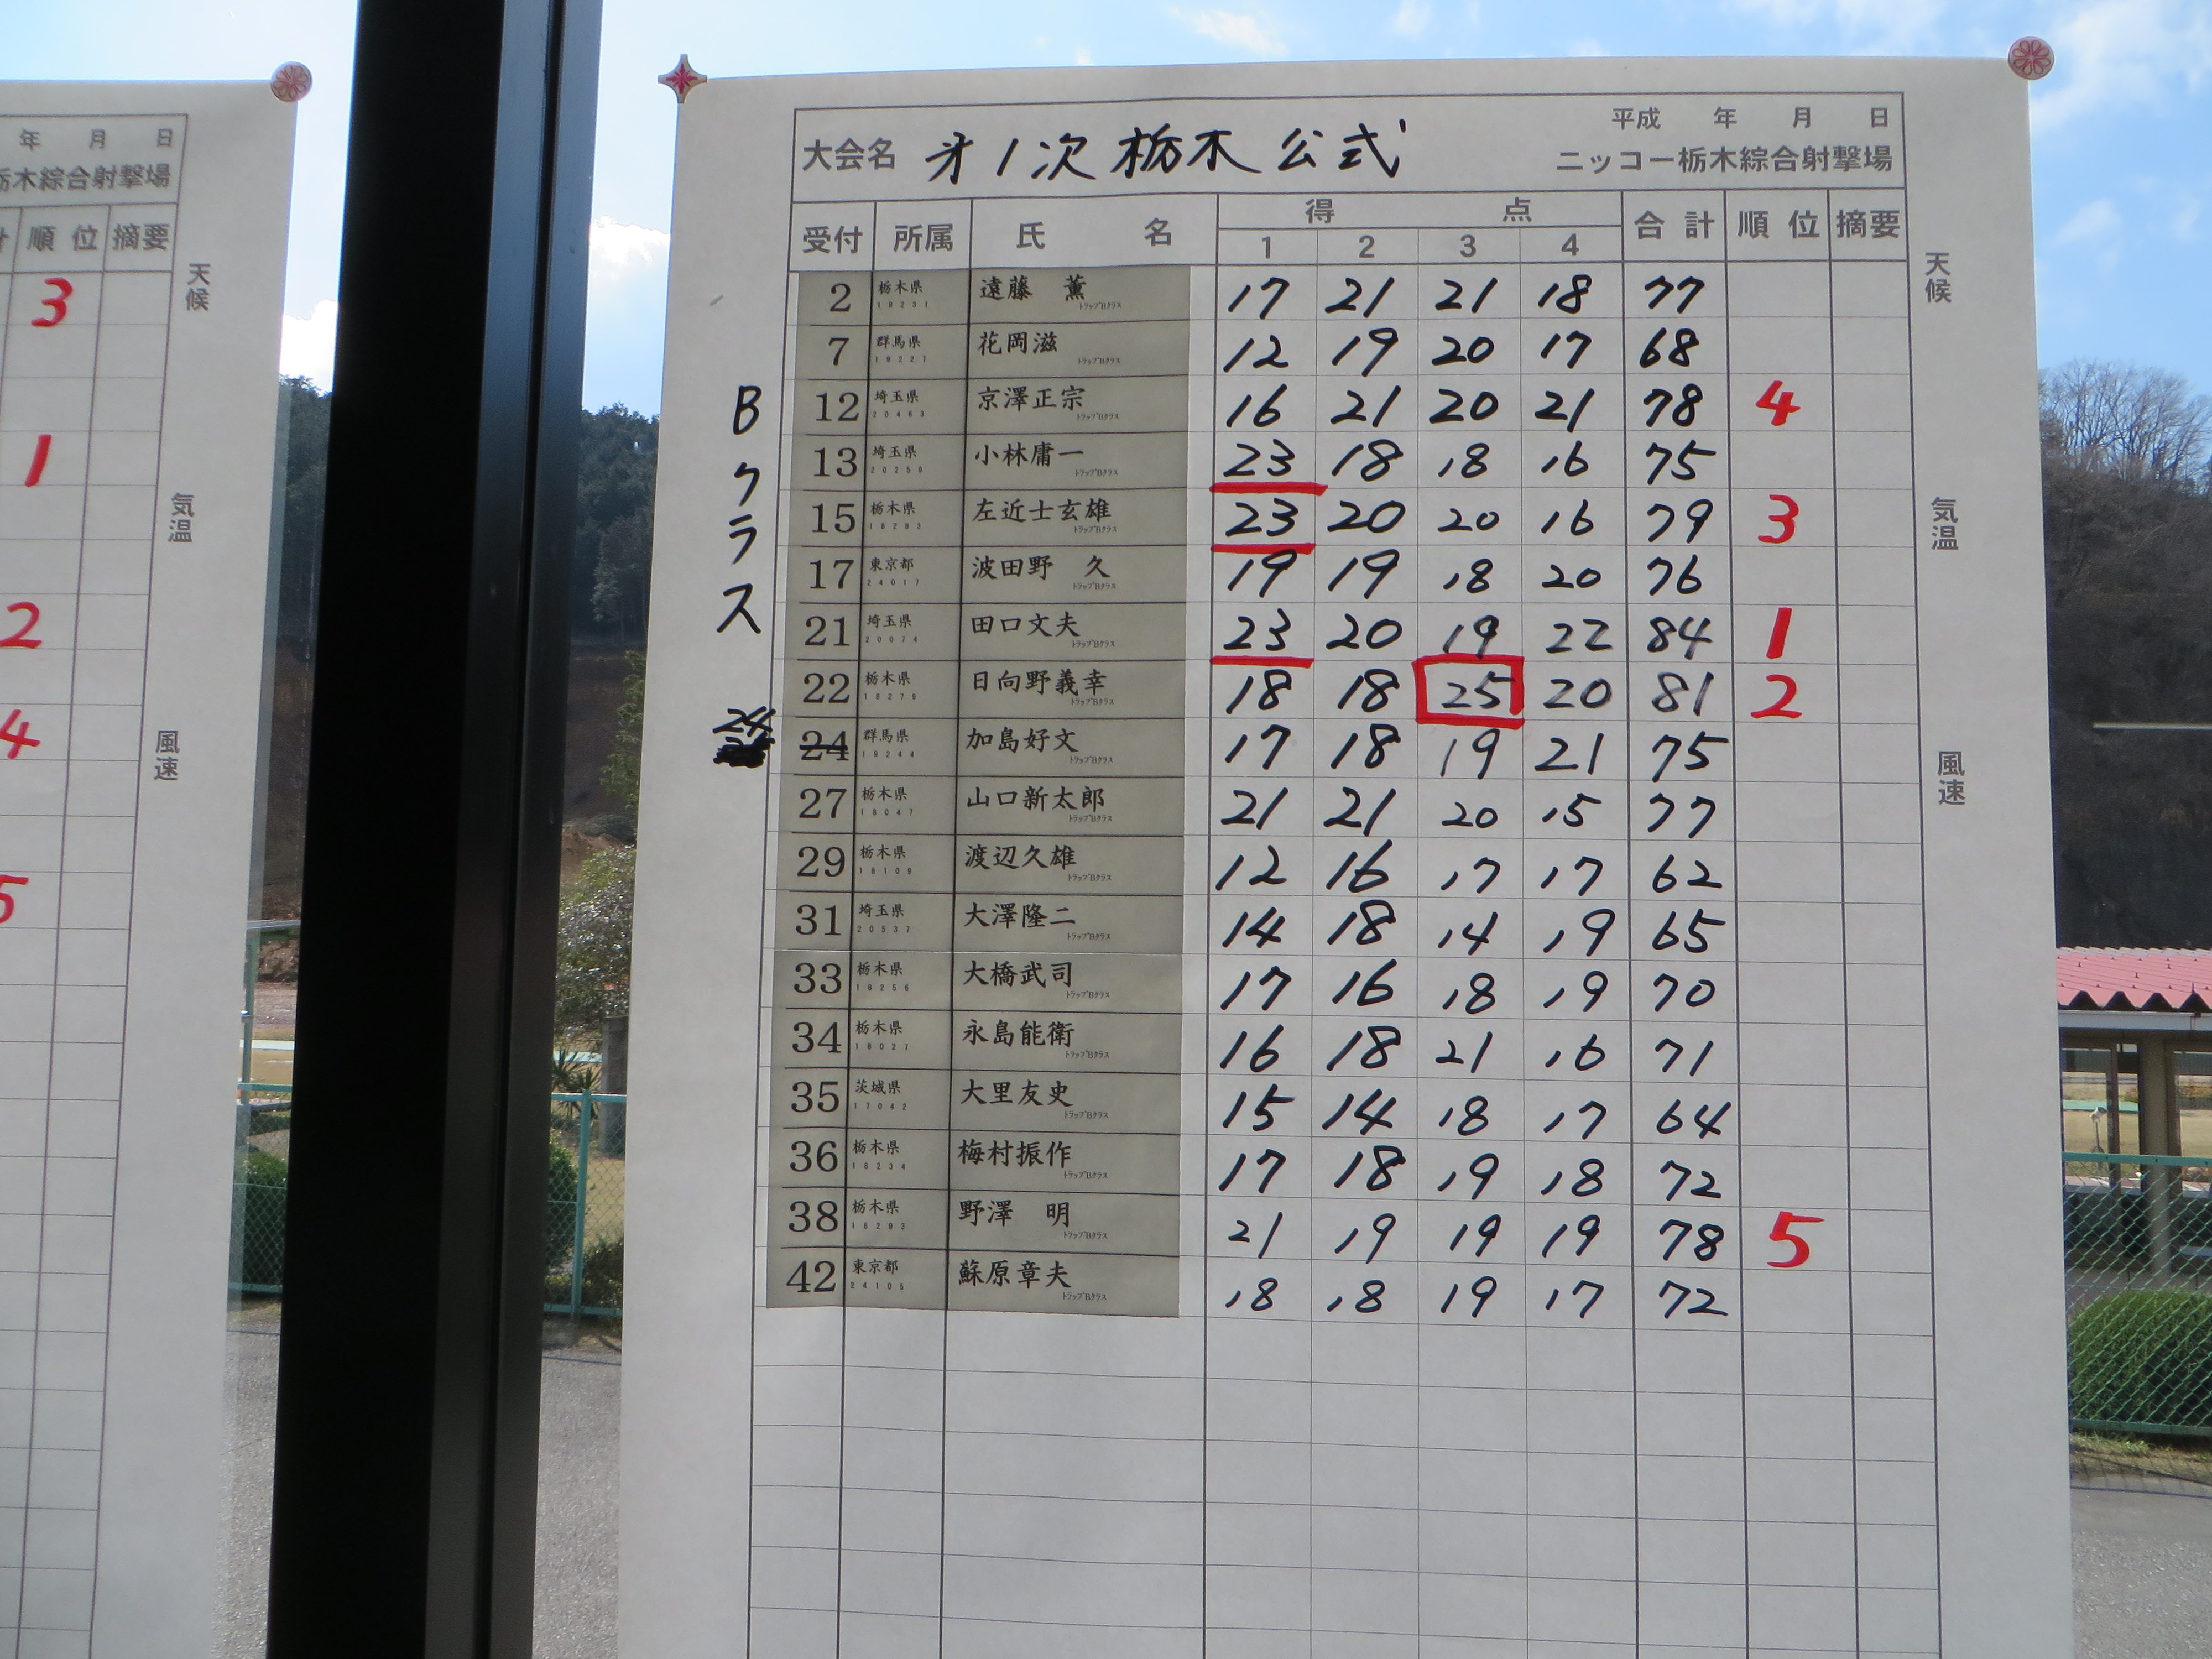 年 月 日
栃木綜合射撃場
計 順位 摘要
3
1
2
4
5
天候
気温
風速
平成 年 月 日
大会名 才1次 栃木公式 ニッコー栃木綜合射撃場
受付 所属 氏名 得点 合計 順位 摘要
1 2 3 4
2 栃木県 18231 遠藤 薫 トラップBクラス 17 21 21 18 77
7 群馬県 19227 花岡滋 トラップBクラス 12 19 20 17 68
12 埼玉県 20463 京澤正宗 トラップBクラス 16 21 20 21 78 4
13 埼玉県 20259 小林庸一 トラップBクラス 23 18 18 16 75
15 栃木県 18283 左近士玄雄 トラップBクラス 23 20 20 16 79 3
17 東京都 24017 波田野 久 トラップBクラス 19 19 18 20 76
21 埼玉県 20074 田口文夫 トラップBクラス 23 20 19 22 84 1
22 栃木県 18279 日向野義幸 トラップBクラス 18 18 25 20 81 2
24 24 群馬県 19244 加島好文 トラップBクラス 17 18 19 21 75
27 栃木県 18047 山口新太郎 トラップBクラス 21 21 20 15 77
29 栃木県 18109 渡辺久雄 トラップBクラス 12 16 17 17 62
31 埼玉県 20537 大澤隆二 トラップBクラス 14 18 14 19 65
33 栃木県 18256 大橋武司 トラップBクラス 17 16 18 19 70
34 栃木県 18027 永島能衛 トラップBクラス 16 18 21 16 71
35 茨城県 17042 大里友史 トラップBクラス 15 14 18 17 64
36 栃木県 18234 梅村振作 トラップBクラス 17 18 19 18 72
38 栃木県 18293 野澤 明 トラップBクラス 21 19 19 19 78 5
42 東京都 24105 蘇原章夫 トラップBクラス 18 18 19 17 72
Bクラス
天候
気温
風速